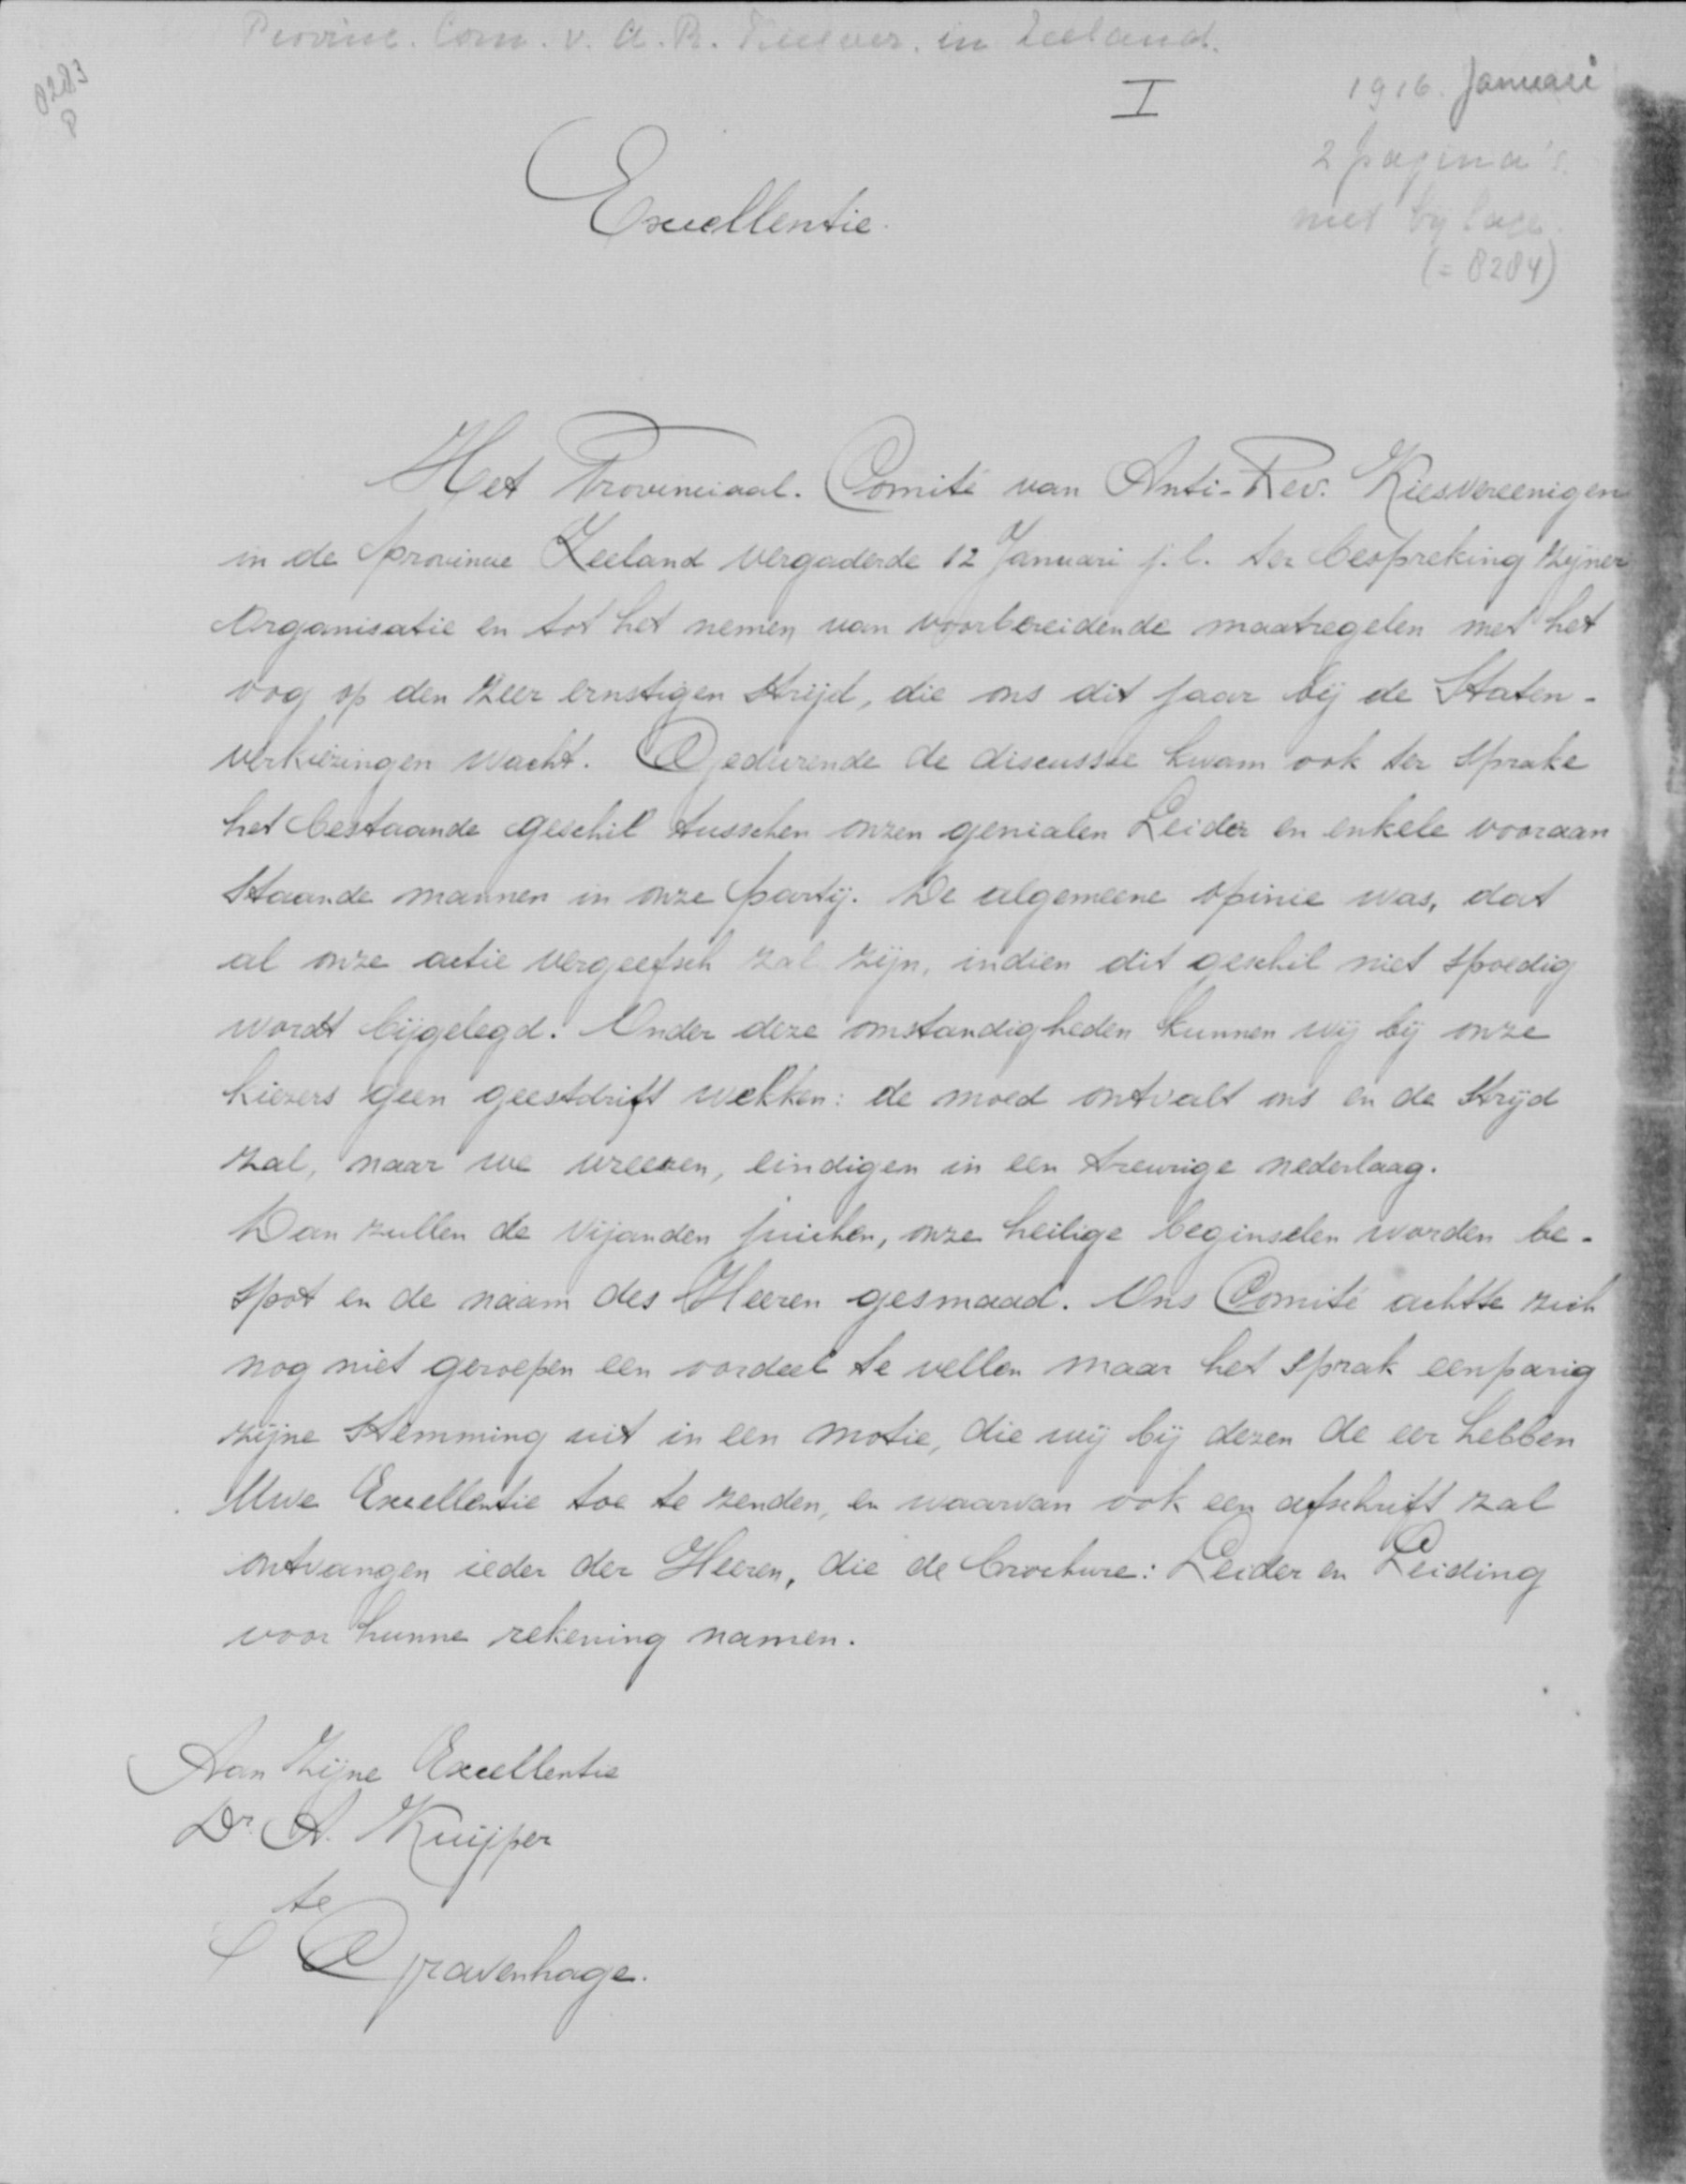 Provinc. Com. v. A.R. Kiesver. in Zeeland.
8283
P
I
1916. Januari
2 pagina's.
met bylage.
(= 8284)
Excellentie.
Het Provinciaal. Comité van Anti-Rev. Kiesvereenigen
in de provincie Zeeland vergaderde 12 Januari j.l. ter bespreking zijner
Organisatie en tot het nemen van voorbereidende maatregelen met het
oog op den zeer ernstigen strijd, die ons dit jaar bij de Staten-
verkiezingen wacht. Gedurende de discussie kwam ook ter sprake
het bestaande geschil tusschen onzen genialen Leider en enkele vooraan
staande mannen in onze partij. De algemeene opinie was, dat
al onze actie vergeefsch zal zijn, indien dit geschil niet spoedig
wordt bijgelegd. Onder deze omstandigheden kunnen wij bij onze
kiezers geen geestdrift wekken: de moed ontvalt ons en de strijd
zal, naar we vreezen, eindigen in een treurige nederlaag.
Dan zullen de vijanden juichen, onze heilige beginselen worden be-
spot en de naam des Heeren gesmaad. Ons Comité achtte zich
nog niet geroepen een oordeel te vellen maar het sprak eenparig
zijne stemming uit in een motie, die wij bij dezen de eer hebben
Uwe Excellentie toe te zenden, en waarvan ook een afschrift zal
ontvangen ieder der Heeren, die de brochure: Leider en Leiding
voor hunne rekening namen.
Aan Zijne Excellentie
Dr. A. Kuijper
te
's Gravenhage.